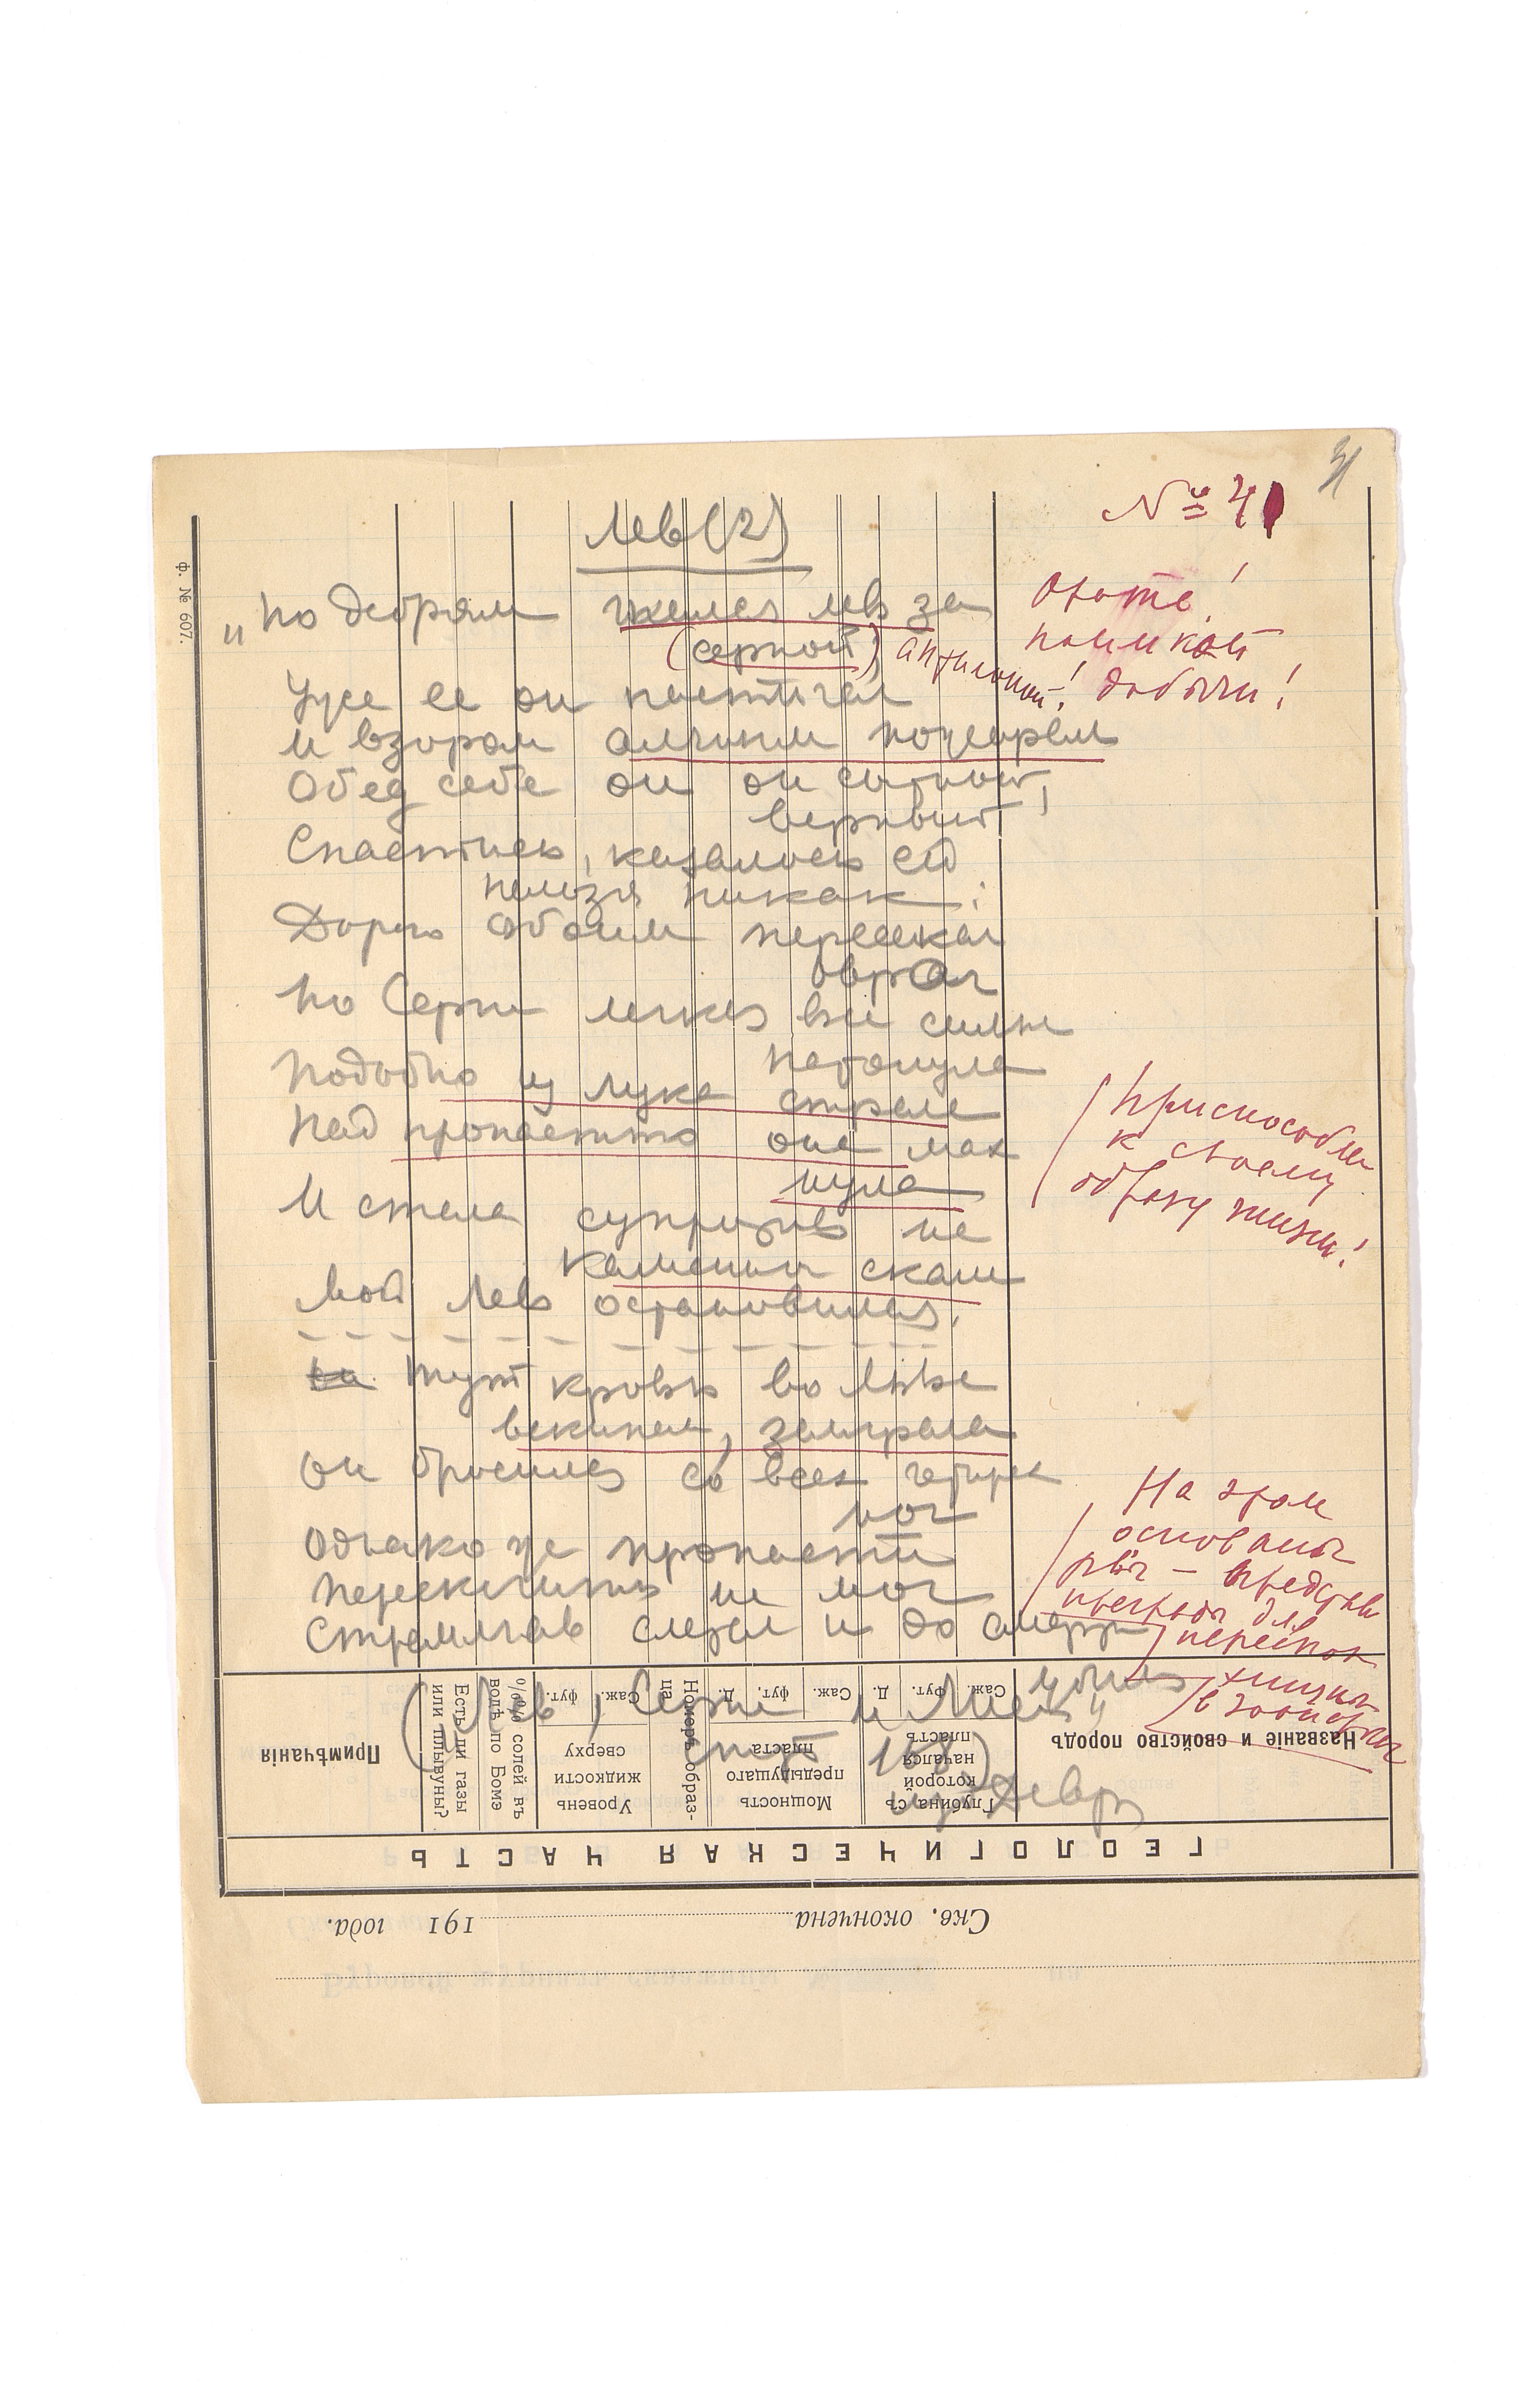 31
№ 41
Лев (2)
"По дебрям гнался лев за
(серной) антилопой!
Опять!
поимкой
добычи!
Уже ее он настигал
И взором алчным пожирал
Обед себе он он сытный,
верный.
Спастись, казалось ей
нельзя никак:
Дорогу обоим пересекал
овраг
Но Серна легкая все силы
напрягнула
Подобно из лука стреле
Над пропастью она мах
нула
И стала супротив на
каменной скале
Приспособлен
к своему
образу жизни!
Мой Лев остановился.
Тут кровь во Льве
вскипела, заиграла
Он бросился со всех четырех
ног
Однако же пропасти
перескочить не мог
Стремглав слетел и до смерти
убился"
На этом
основаны
рвы -
преграды для
хищных
(Лев, Серна и Лиса
стр 168)
ф. № 607.
ГЕОЛОГИЧЕСКАЯ ЧАСТЬ
Названіе и свойство породъ
Глубина, съ которой начался пластъ
Саж. Фут. Д.
Мощность предыдущаго пласта
Саж. фут. Д.
Номеръ образца
Уровень жидкости сверху
Саж. фут.
%% солей въ водѣ по Бомэ
Есть ли газы или плывуны?
Примѣчанія
Скв. окончена 191 года.